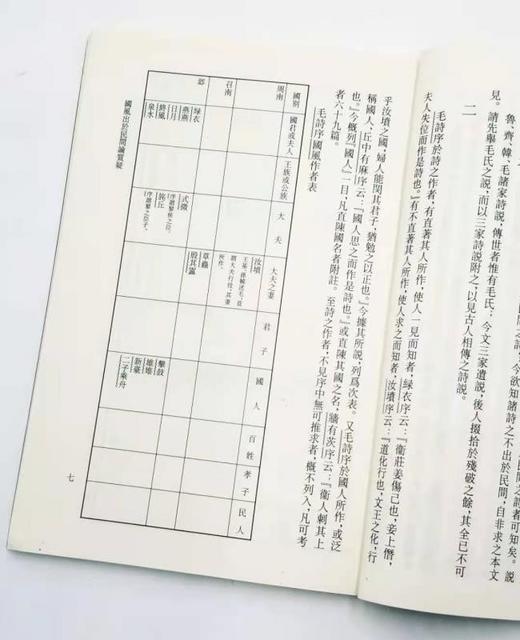 間之詩者可知矣。說
今欲知諸詩之不出於民間,自非求之本文
魯、齊、韓、毛諸家詩說,傳世者惟有毛氏;今文三家遺說,後人掇拾於殘破之餘,其全已不可
見。請先舉毛氏之說,而以三家詩說附之,以見古人相傳之詩說。
二
毛詩序於詩之作者,有直著其人所作,使人一見而知者,綠衣序云:『衞莊姜傷己也,妾上僭,
夫人失位而作是詩也。』有不直著其人所作,使人求之而知者,汝墳序云:『道化行也,文王之化,行
乎汝墳之國,婦人能閔其君子,猶勉之以正也。』今據其所說,列爲次表。又毛詩序於國人所作,或泛
稱國人、丘中有麻序云:『國人思之而作是詩也。』或直陳其國之名,牆有茨序云:『衞人刺其上
也。』今概列『國人』一目,凡直陳國名者附註。至詩之作者,不見序中無可推求者,概不列入,凡可考
者六十九篇。
毛詩序國風作者表
國別
國君或夫人
王族或公族
大夫
大夫之妻
君子
國人
百姓
孝子
民人
周南
汝墳
召南
草蟲
殷其靁
邶
綠衣
燕燕
日月
終風
泉水
式微
旄丘
擊鼓
雄雉
新臺
二子乘舟
國風出於民間論質疑
七